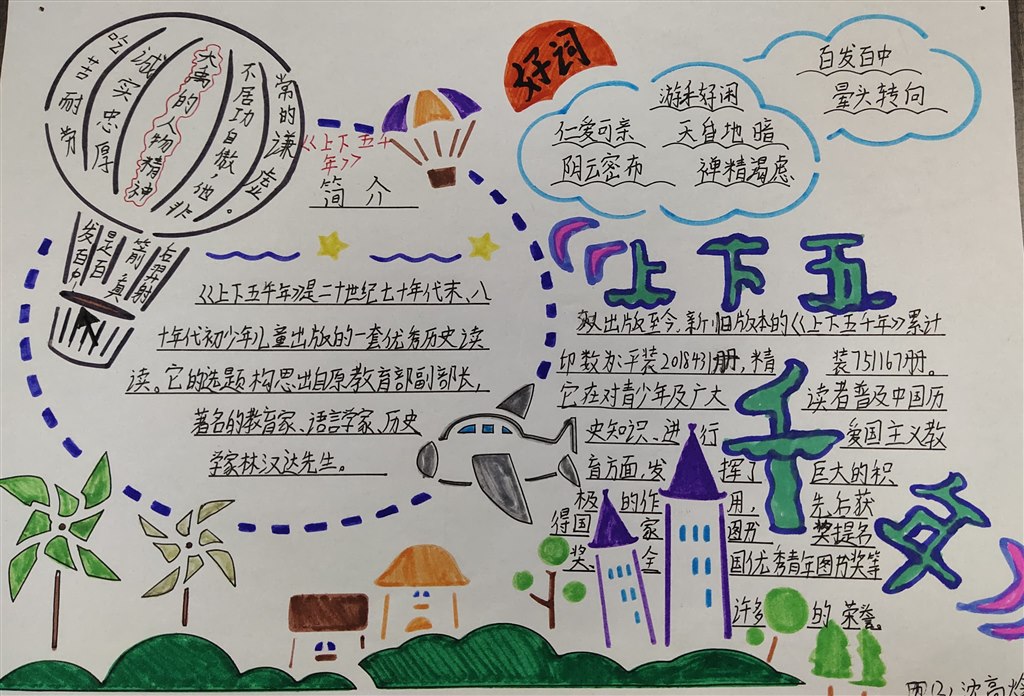 吃苦耐劳
诚实忠厚
大禹的人物精神
不居功自傲，他非
常的谦虚。
后羿射
箭真
是百
发百中
《上下五千
年》
简介
《上下五千年》是二十世纪七十年代末、八
十年代初少年儿童出版的一套优秀历史读
读。它的选题构思出自原教育部副部长，
著名的教育家、语言学家、历史
学家林汉达先生。
好词
游手好闲
仁爱可亲 天昏地暗
阴云密布 殚精竭虑
百发百中
晕头转向
上下五千年
出版至今，新旧版本的《上下五千年》累计
印数为：平装2018431册，精装751167册。
它在对青少年及广大读者普及中国历
史知识、进行爱国主义教
育方面，发挥了巨大的积
极的作用，先后获
得国家图书奖提名
奖、全国优秀青年图书奖等
许多的荣誉。